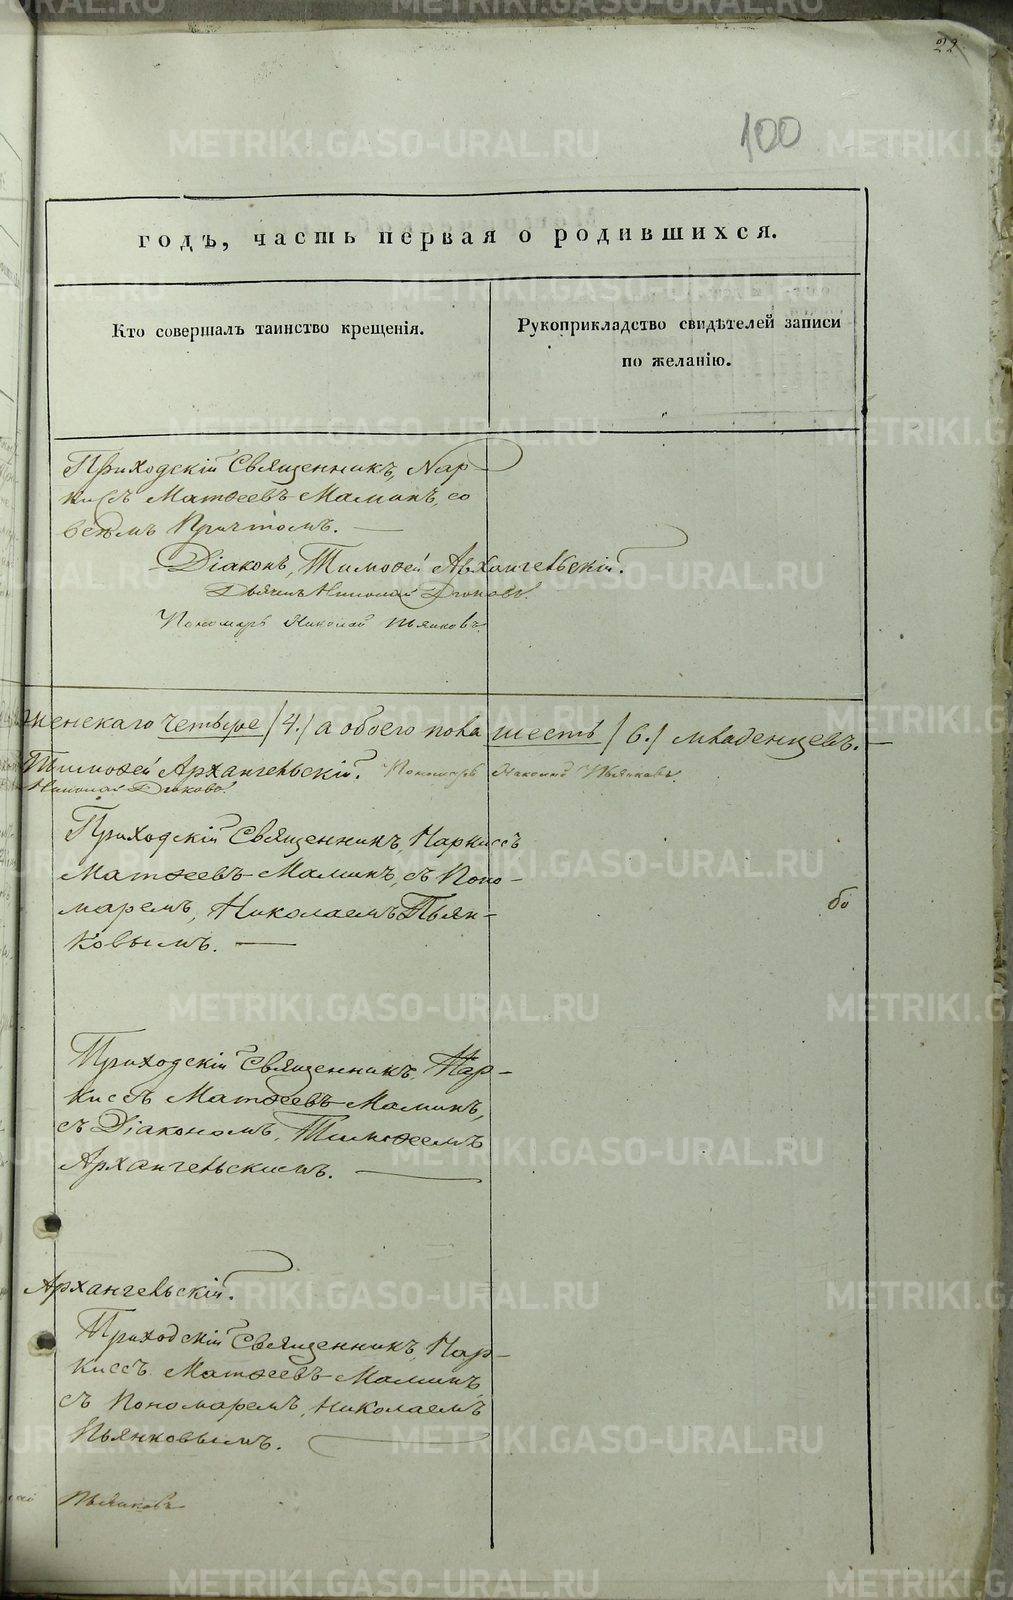 22
100
годъ, часть первая о родившихся.
Кто совершалъ таинство крещенія.
Рукоприкладство свидѣтелей записи
по желанію.
Приходскій Священникъ, Нар-
киссъ Матѳеевъ Маминъ, со
всѣмъ Причтомъ. —
Діаконъ, Тимоѳей Архангельскій.
Дьячекъ Николай Дюковъ.
Пономарь Николай Пьянковъ.
женскаго четыре /4./ а обоего пола шесть /6./ младенцевъ. —
Тимоѳей Архангельскій. Пономарь Николай Пьянковъ.
Николай Дюковъ.
Приходскій Священникъ Наркиссъ
Матѳеевъ Маминъ, съ Поно-
маремъ, Николаемъ Пьян-
ковымъ. —
Приходскій Священникъ, Нар-
киссъ Матѳеевъ Маминъ,
съ Діакономъ, Тимоѳеемъ
Архангельскимъ. —
Архангельскій.
Приходскій Священникъ, Нар-
киссъ Матѳеевъ Маминъ,
съ Пономаремъ, Николаемъ
Пьянковымъ. —
Пьянковъ
METRIKI.GASO-URAL.RU